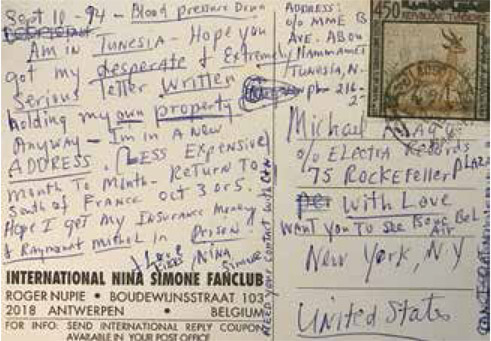 Sept 10 - 94 - Blood pressure Down
Am in TUNESIA - Hope you
got my desperate & Extremely
Serious letter Written
holding my own property
Anyway - I'm in A New
ADDRESS. (LESS EXPENSIVE)
Month To Month - Return To
South of France Oct 3 or 5.
Hope I get My Insurance Money
& Raymond Michel In Prison!
Love
Kiss, NINA
Simone
NEED your contact with
INTERNATIONAL NINA SIMONE FANCLUB
ROGER NUPIE • BOUDEWIJNSTRAAT 103
2018 ANTWERPEN • BELGIUM
FOR INFO: SEND INTERNATIONAL REPLY COUPON
AVAILABLE IN YOUR POST OFFICE
ADDRESS:
c/o MME B
AVE. ABOU
Hammamet
TUNESIA, N.
ph- 216-
2
450
REPUBLIQUE TUNISIENNE
Michael
c/o Electra Records
75 Rockefeller PLAZA
With Love
Want You To see Bouc Bel
Air
New York, N.Y
United States